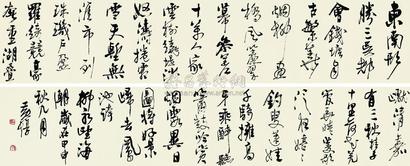 東南形
勝三吳都
會錢塘自
古繁華
烟柳畫
橋風簾翠
幕參差
十萬人家
雲樹繞堤沙
怒濤捲霜
雪天塹無
涯市列
珠璣戶盈
羅綺競豪
奢重湖疊
巘清嘉
有三秋桂子
十里荷花羌
管弄晴菱
歌泛夜嬉嬉
釣叟蓮娃
千騎擁高
牙乘醉聽
簫鼓吟賞
烟霞異日
圖將好景
歸去鳳
池誇
柳永望海
潮歲在甲申
秋九月